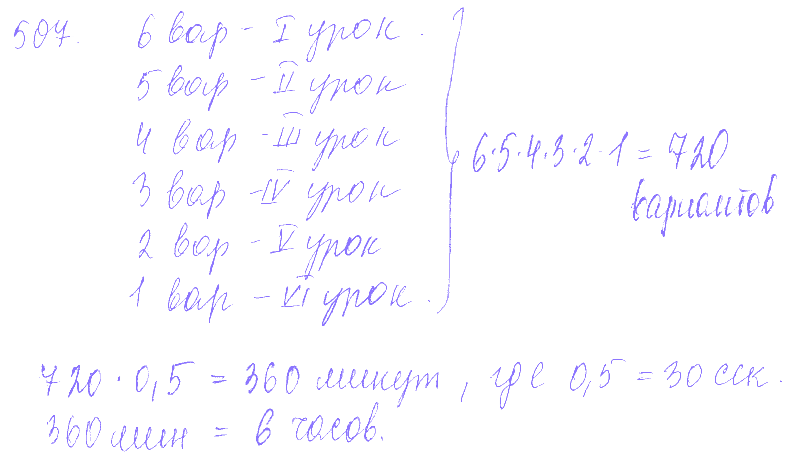 507. 6 вар - I урок.
5 вар - II урок
4 вар - III урок
3 вар - IV урок
2 вар - V урок
1 вар - VI урок.
6·5·4·3·2·1 = 720
вариантов
720 · 0,5 = 360 минут, где 0,5 = 30 сек.
360 мин = 6 часов.